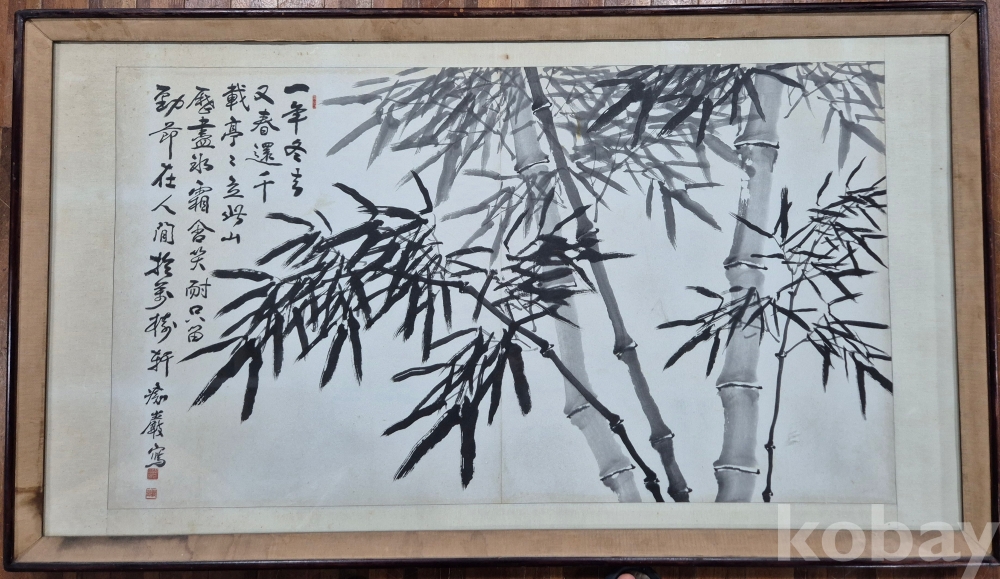 一年冬去
又春還千
載亭〻立此山
歷盡氷霜含笑耐只留
勁節在人間於萬軒巖寫
kobay